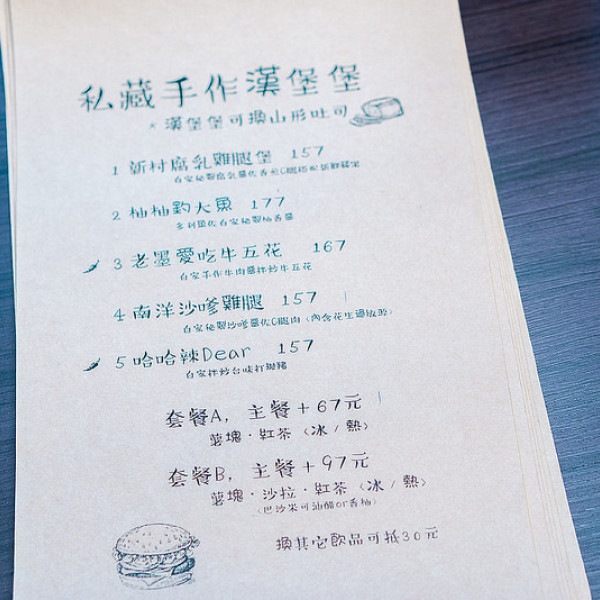 私藏手作漢堡堡
×漢堡堡可換山形吐司
1 新村腐乳雞腿堡 157
2 柚柚釣大魚 177
多利魚佐自家秘製柚香醬
3 老墨愛吃牛五花 167
自家手作牛肉醬拌炒牛五花
4 南洋沙嗲雞腿 157
自家秘製沙嗲醬佐C腿肉（內含花生過敏源）
5 哈哈辣Dear 157
自家拌炒台味打拋豬
套餐A, 主餐+67元
薯塊·紅茶（冰/熱）
套餐B, 主餐+97元
薯塊·沙拉·紅茶（冰/熱）
（巴沙米可油醋or香柚）
換其它飲品可抵30元